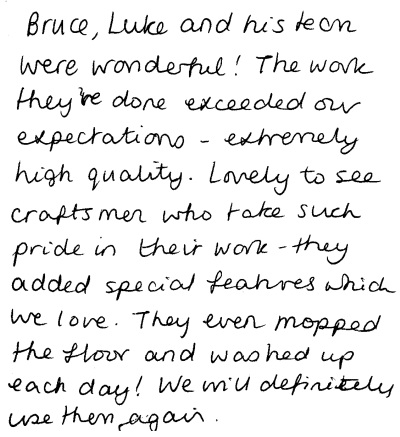 Bruce, Luke and his team
were wonderful! The work
they've done exceeded our
expectations - extremely
high quality. Lovely to see
craftsmen who take such
pride in their work - they
added special features which
we love. They even mopped
the floor and washed up
each day! We will definitely
use them again.